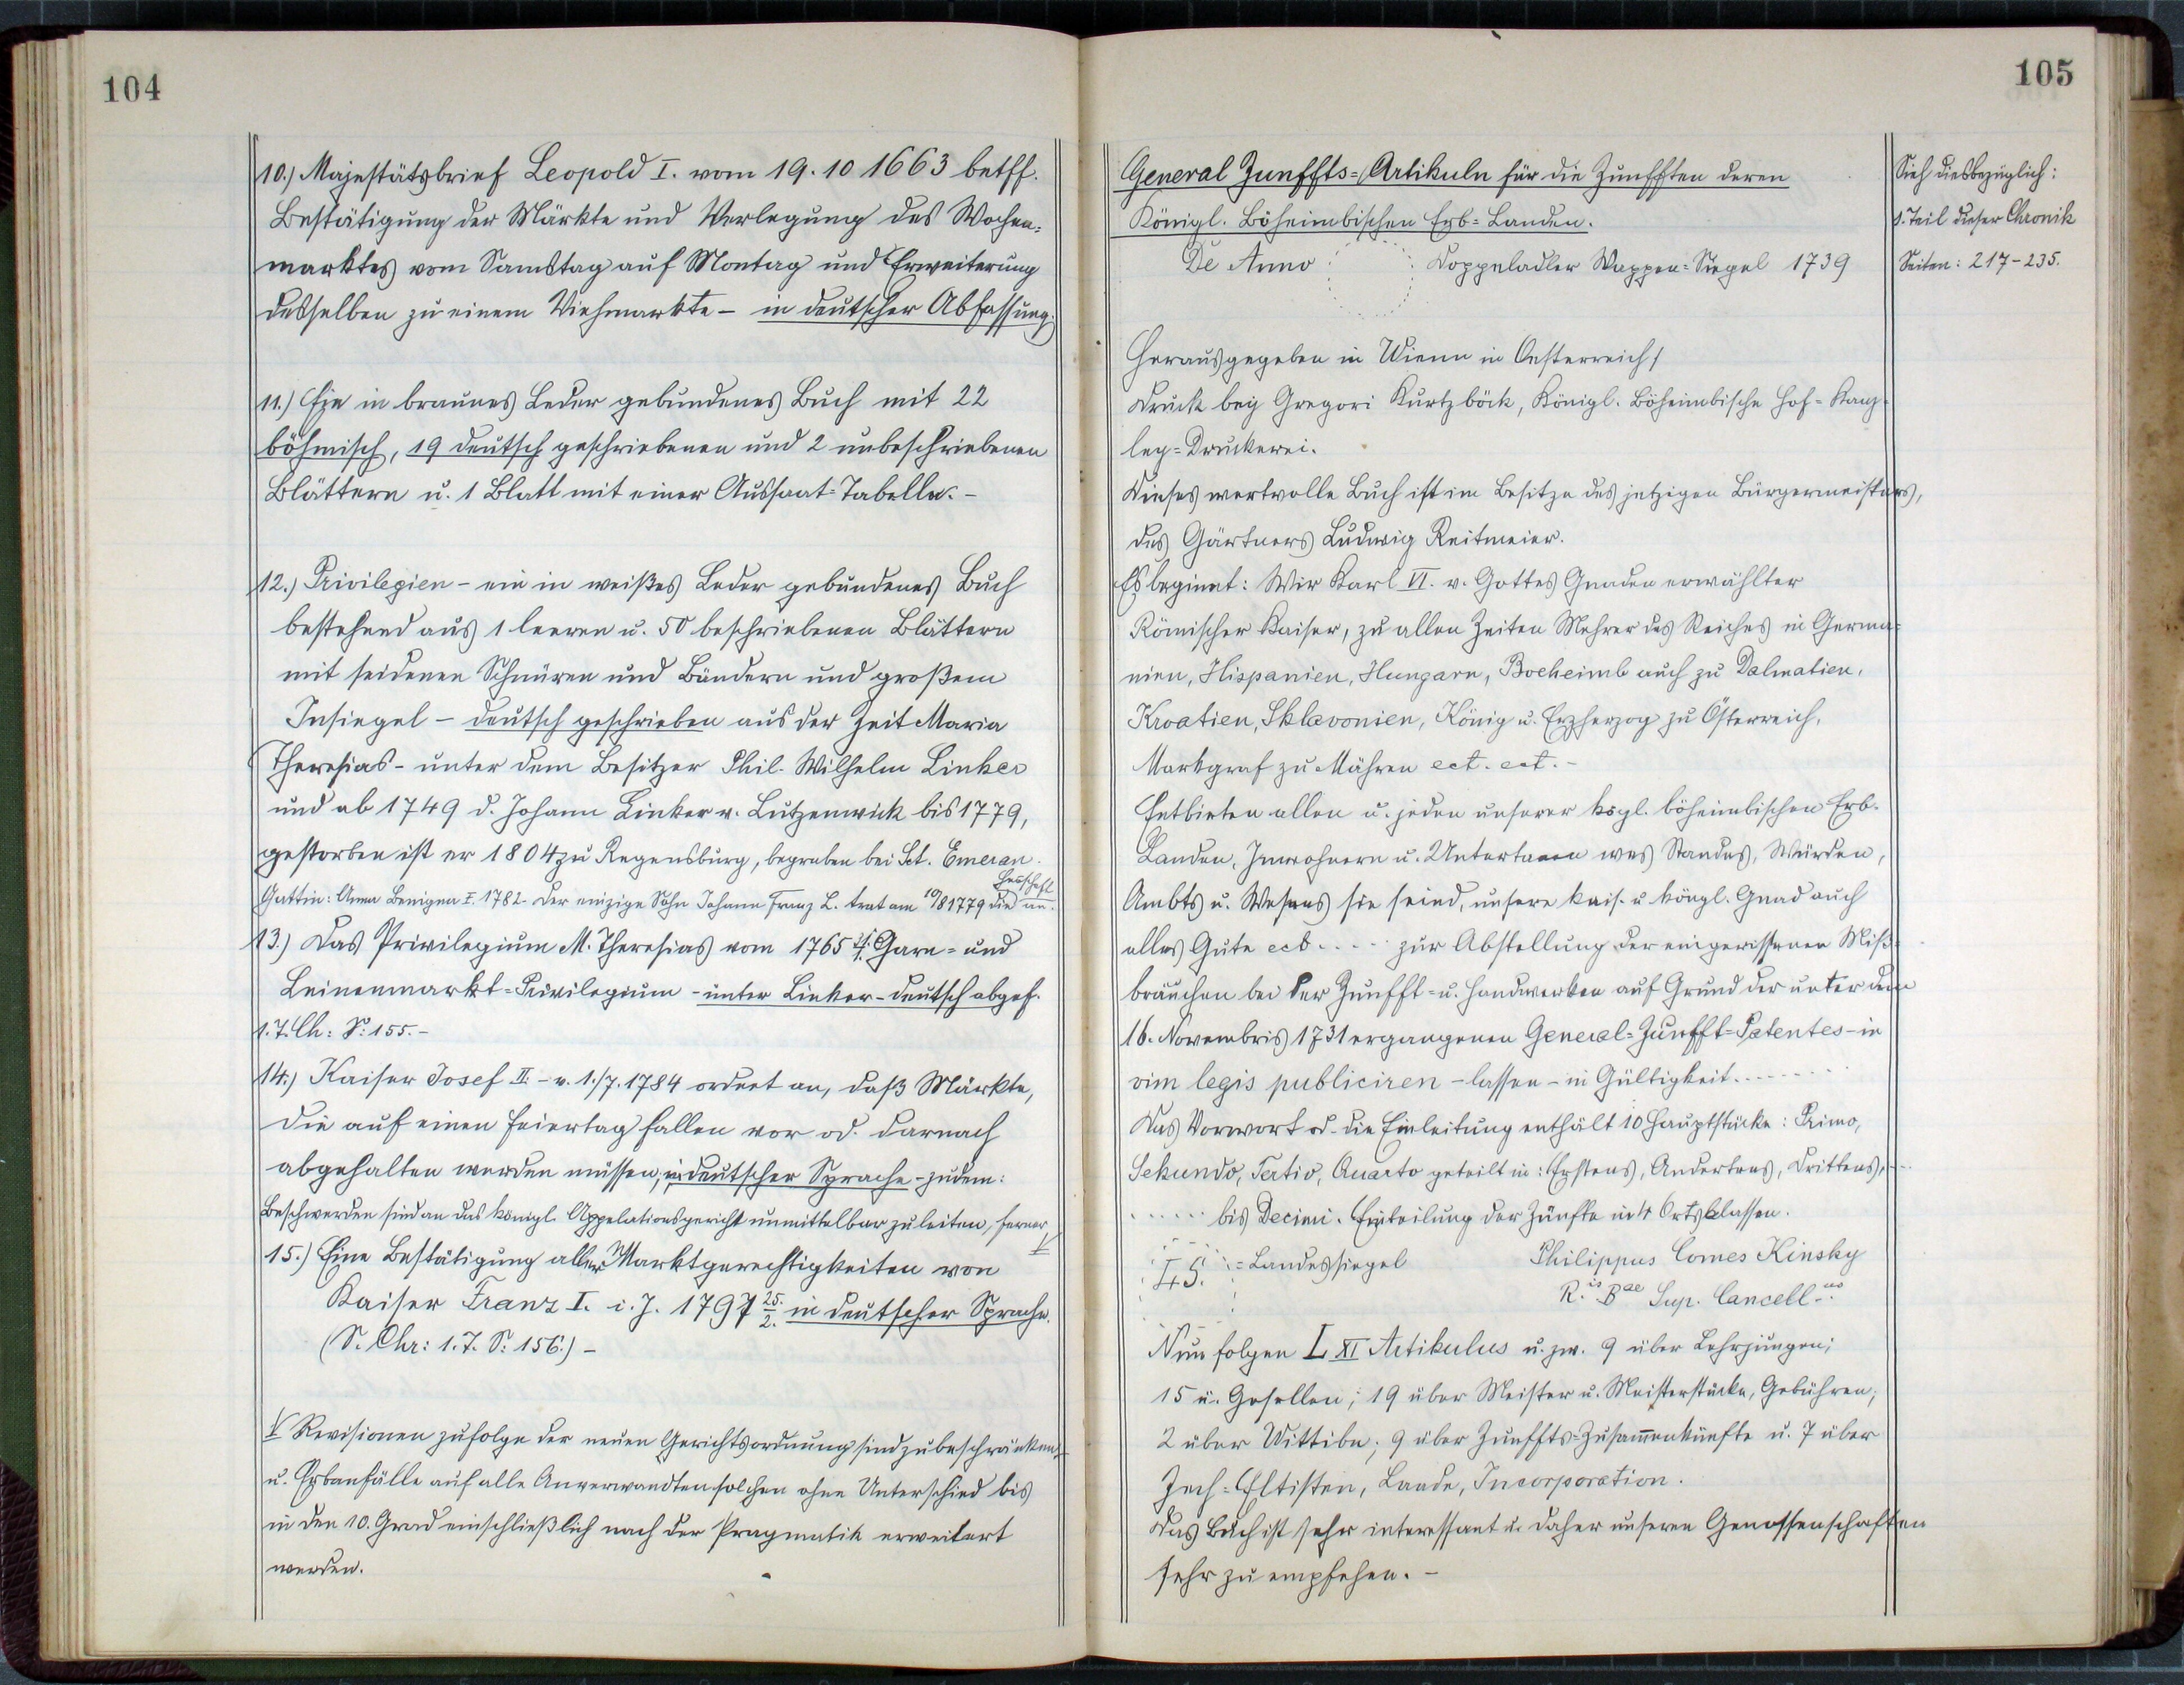 104
10.) Majestätsbrief Leopold I. vom 19. 10 1663 betff.
Bestätigung der Märkte und Verlegung des Wochen=
marktes vom Samstag auf Montag und Erweiterung
desselben zu einem Viehmarkte – in deutscher Abfassung.
11.) Ein in braunes Leder gebundenes Buch mit 22
böhmisch, 19 deutsch geschriebenen und 2 unbeschriebenen
Blättern u. 1 Blatt mit einer Aussaat=Tabelle. –
12.) Privilegien – ein in weißes Leder gebundenes Buch
bestehend aus 1 leeren u. 50 beschriebenen Blättern
mit seidenen Schnüren und Bändern und großem
Insiegel – deutsch geschrieben aus der Zeit Maria
Theresias – unter dem Besitzer Phil. Wilhelm Linker
und ab 1749 d. Johann Linker v. Lutzenwick bis 1779,
gestorben ist er 1804 zu Regensburg, begraben bei Sct. Emeran.
Gattin: Anna Benigna I. 1782. Der einzige Sohn Johann Franz L. trat am 10/8 1779 die Herrschaft an.
13.) Das Privilegium M. Theresias vom 1765 Garn= und
Leinenmarkt=Privilegium – unter Linker – deutsch abgef.
1. T. Ch: S: 155. –
14.) Kaiser Josef II. – v. 1./7. 1784 ordnet an, daß Märkte,
die auf einen Feiertag fallen vor od. darnach
abgehalten werden müssen; in deutscher Sprache – zudem:
Beschwerden sind an das königl. Appelationsgericht unmittelbar zu leiten, ferner
15.) Eine Bestätigung aller Marktgerechtigkeiten von
Kaiser Franz I. i. J. 1797 25./2. in deutscher Sprache.
(S. Chr: 1. T. S: 156.) –
Revisionen zufolge der neuen Gerichtsordnung sind zu beschränken
u. Erbanfälle auf alle Anverwandten solchen ohne Unterschied bis
in den 10. Grad einschließlich nach der Pragmatik erweitert
werden.
105
General Zunffts=Artikuln für die Zunfften deren
Königl. Böheimbischen Erb=Landen.
De Anno Doppeladler Wappen=Siegel 1739
Sieh diesbezüglich:
1. Teil dieser Chronik
Seiten: 217–235.
Herausgegeben in Wienn in Oesterreich/
Druck bey Gregori Kurtzböck, Königl. Böheimbische Hof=Kanz=
ley=Druckerei.
Dieses wertvolle Buch ist im Besitze des jetzigen Bürgermeisters,
des Gärtners Ludwig Reitmeier.
Es beginnt: Wir Karl VI. v. Gottes Gnaden erwählter
Römischer Kaiser, zu allen Zeiten Mehrer des Reiches in Germa=
nien, Hispanien, Hungarn, Boeheimb auch zu Dalmatien,
Kroatien, Sklavonien, König u. Erzherzog zu Österreich,
Markgraf zu Mähren ect. ect. –
Entbieten allen u. jeden unserer kögl. böheimbischen Erb=
Landen, Innwohnern u. Untertanen was Standes, Würden,
Ambts u. Wesens sie seind, unsere kais. u köngl. Gnad auch
alles Gute ect. .... zur Abstellung der eingerissenen Miß=
bräuchen bei der Zunfft= u. Handwerken auf Grund der unter dem
16. Novembris 1731 ergangenen General=Zunfft=Patentes – in
vim legis publiciren – lassen – in Gültigkeit. ........
Das Vorwort od. die Einleitung enthält 10 Hauptstücke: Primo,
Sekundo, Tertio, Quarto geteilt in: Erstens, Andertens, Drittens, ...
...... bis Decimi. Einteilung der Zünfte in 4 Ortsklassen.
L.S. = Landessiegel Philippus Comes Kinsky
R.is Bae Sup. Cancell.us
Nun folgen L XI Artikulus u. zw. 9 über Lehrjungen;
15 ü. Gesellen; 19 über Meister u. Meisterstücke, Gebühren;
2 über Wittibe; 9 über Zunffts=Zusammenkünfte u. 7 über
Zech=Eltisten, Laade, Incorporation.
Das Buch ist sehr interessant u. daher unseren Genossenschaften
sehr zu empfehen. –